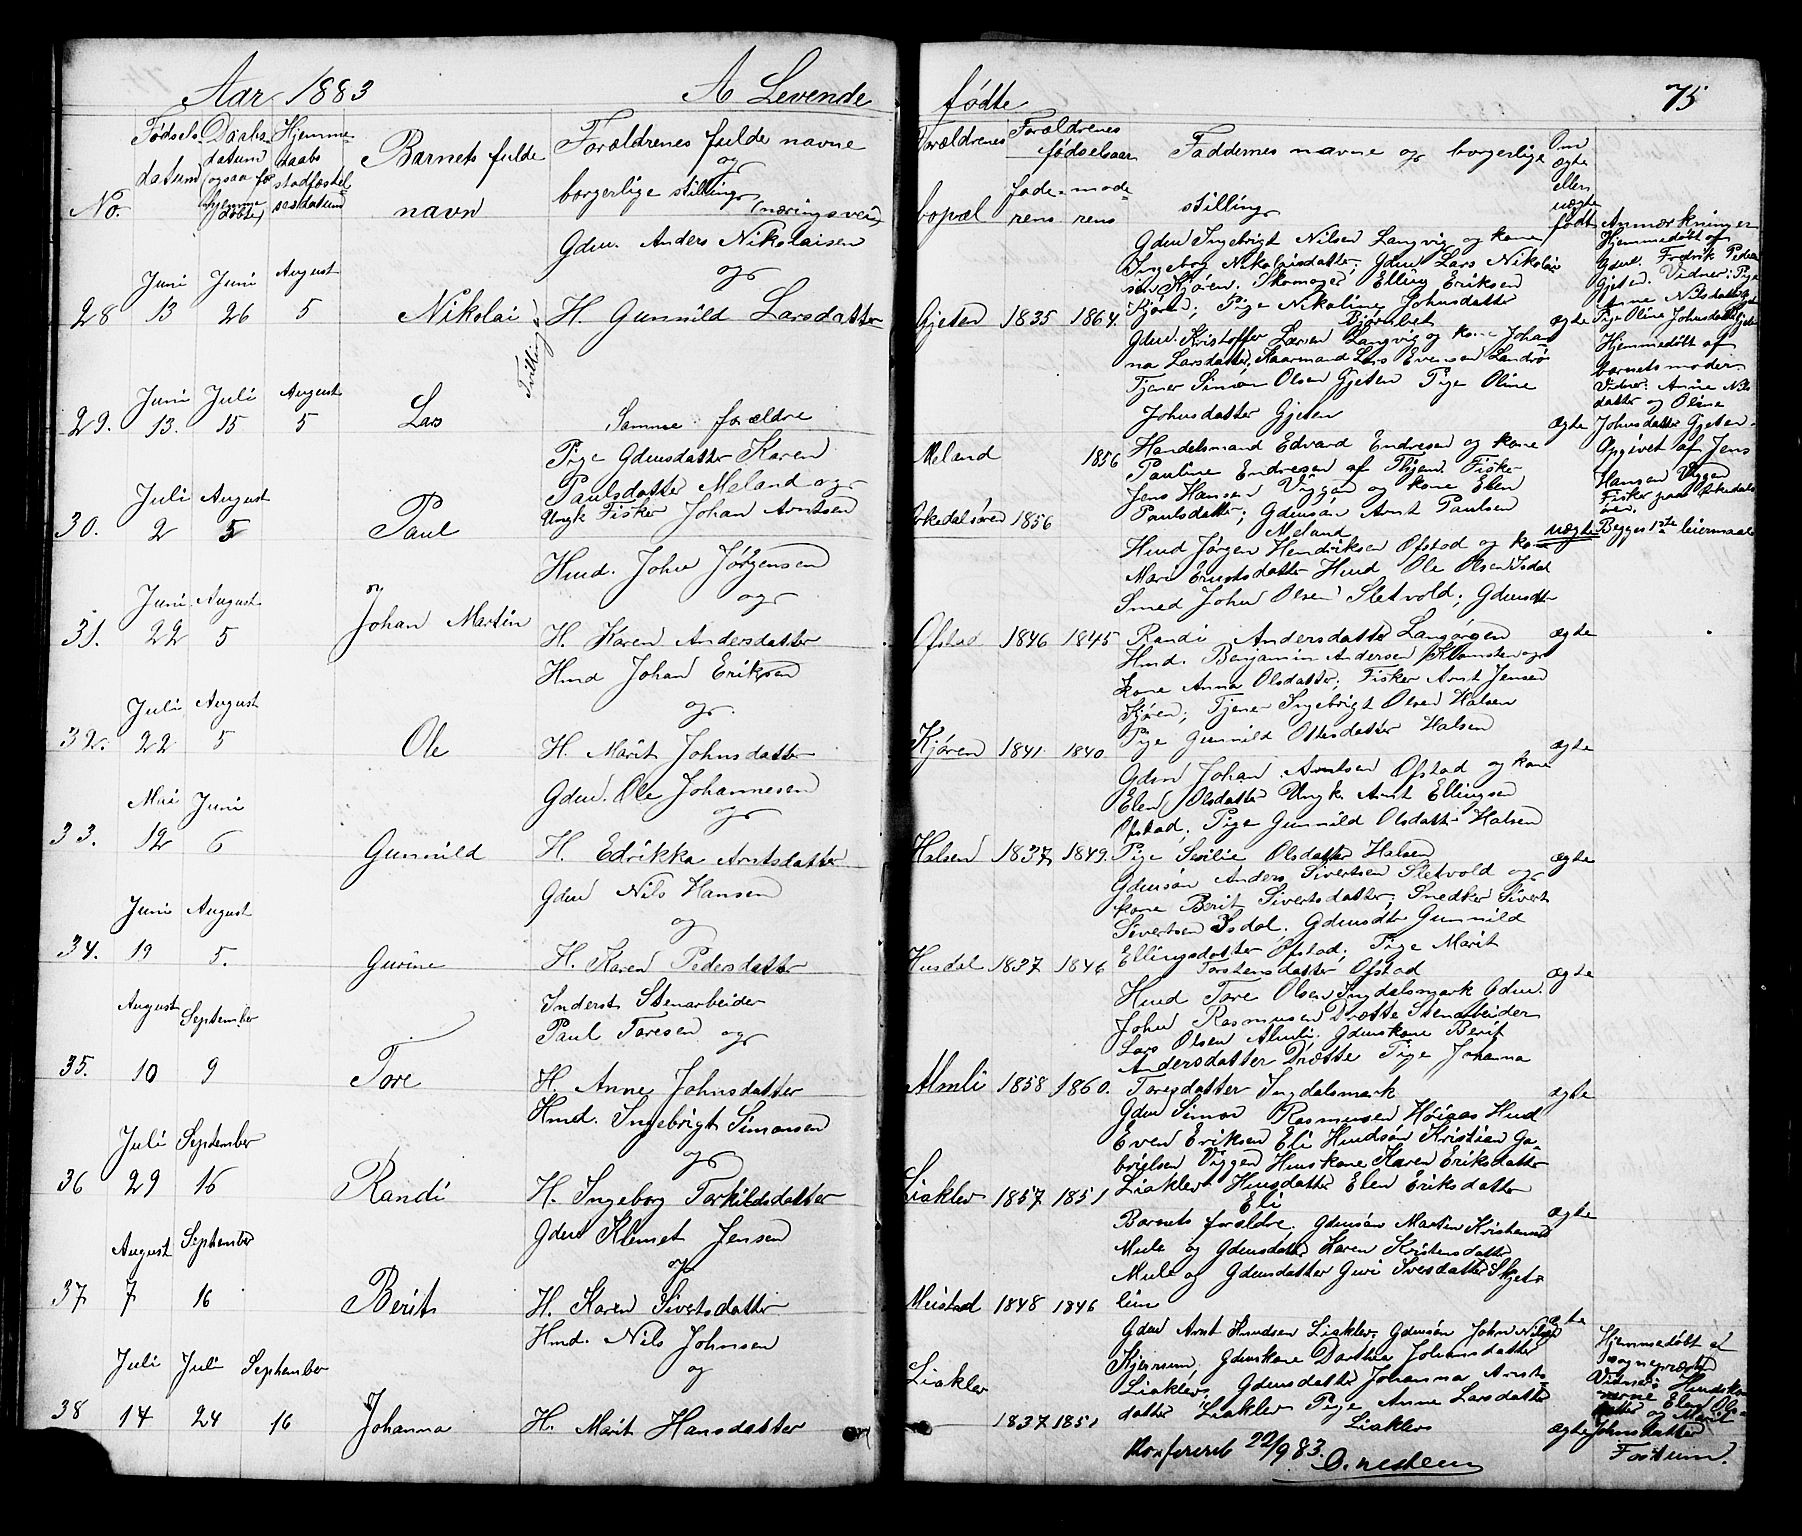 Aar 1883 A Levende
No.
Fødsels datum
Daabs datum (ogsaa for hjemme døbte)
Hjemme daabs stadfæstelsesdatum
Barnets fulde navn
Forældrenes fulde navne og borgerlige stilling (næringsvei)
28 Juni 13 Juni 26 August 5 Nikolai
Gdm. Anders Nikolaisen
og
H. Gunnild Larsdatter
Tvillinger
29. Juni 13. Juli 15 August 5 Lars
Samme forældre
30. Juli 2 August 5 Paul
Pige Gdmsdatter Karen
Paulsdatter Meland og
Ungk Fisker Johan Arntsen
31. Juni 22 August 5 Johan Martin
Hmd. John Jørgensen
og
H. Karen Andersdatter
32. Juli 22 August 5 Ole
Hmd Johan Eriksen
og
H. Marit Johnsdatter
33. Mai 12 Juni 6 Gunnild
Gdm. Ole Johannesen
og
H. Edrikka Arntsdatter
34. Juni 19 August 5. Gurine
Gdm Nils Hansen
og
H. Karen Pedersdatter
35. August 10 September 9 Tore
Inderst Stenarbeider
Paul Toresen og
H. Anne Johnsdatter
36 Juli 29 September 16 Randi
Hmd. Ingebrigt Simonsen
og
H. Ingeborg Torkildsdatter
37 August 7 September 16 Berit
Gdm Klemet Jensen
og
H. Karen Sivertsdatter
38 Juli 14 Juli 24 September 16 Johanna
Hmd. Nils Johnsen
og
H. Marit Hansdatter
fødte 75
Forældrenes bopæl
Forældrenes fødselsaar
faderens moderens
Faddernes navne og borgerlige stilling
Om ægte eller uægte født
Anmærkninger
Gjeten 1835 1864.
Gdm Ingebrigt Nilsen Langvig og kone
Ingeborg Nikolaisdatter; Gdm Lars Nikolai
sen Kjøren. Skomager Elling Eriksen
Kjøren; Pige Nikoline Johnsdatter
ægte
Hjemmedøbt af
Gdm. Fredrik Peders
Gjeten. Vidner: Pige
Anne Nilsdatter
Pige Oline Johnsdatter Gjeten
Gdm. Kristoffer Larsen Langvig og kone Johan
na Larsdatter, Haarmand Lars Evensen Landrø
Tjener Simon Olsen Gjeten Pige Oline
Johnsdatter Gjeten
ægte
Hjemmedøbt af
barnets moder
Vidner: Anne Nils
datter og Oline
Johnsdatter Gjeten.
Meland 1856
Orkedalsøren 1856
Handelsmand Edvard Endresen og kone
Pauline Endresen af Thjem Fisker
Jens Hansen Viggen og kone Elen
Paulsdatter; Gdmsøn Arnt Paulsen
Meland
uægte
Opgivet af Jens
Hansen Viggen
Fisker paa Orkedals
øren.
Begges 1ste leiermaal
Ofstad 1846 1845
Hmd Jørgen Hendriksen Ofstad og kone
Mari Erntsdatter Hmd Ole Olsen Isdal
Smed John Olsen Sletvold; Gdmsdtr
Randi Andersdatter Langørgen
ægte
Kjøren 1841. 1840.
Hmd. Benjamin Andersen Klomsten og
kone Anna Olsdatter; Fisker Arnt Jensen
Kjøren; Tjener Ingebrigt Olsen Halsen
Pige Gunnild Ottesdatter Halsen
ægte
Halsen 1837 1849.
Gdm Johan Arntsen Ofstad og kone
Elen Olsdatter Ungk. Arnt Ellingsen
Ofstad; Pige Gunnild Olsdatter Halsen
Pige Sesilie Olsdatter Halsen
ægte
Husdal 1837 1846
Gdmsøn Anders Sivertsen Sletvold og
kone Berit Sivertsdatter; Snedker Sivert
Sivertsen Isdal. Gdmsdtr Gunnild
Ellingsdatter Ofstad; Pige Marit
Torstensdatter Ofstad
ægte
Almli 1858 1860.
Hmd Tore Olsen Ingdalsmark Gdm.
John Rasmusen Drætte Stenarbeider
Lars Olsen Almli; Gdmskone Berit
Andersdatter Drætte Pige Johanna
Toresdatter Ingdalsmark
ægte
Liaklev 1857 1851
Gdm Simon Rasmusen Høigaas Hmd
Even Eriksen Eli Hmdsøn Kristian Ga-
brielsen Viggen Hmskone Karen Eriksdatter
Liaklev Hmsdatter Elen Eriksdatter
Eli
ægte
Meistad 1848 1846
Barnets forældre. Gdmsøn Martin Kristensen
Mule og Gdmsdatter Karen Kristensdatter
Mule og Gdmsdatter Guri Iversdatter Skjet-
lein
ægte
Liaklev 1837 1851
Gdm Arnt Knudsen Liaklev. Gdmsøn John Nilsen
Kjerrem, Gdmskone Dorthea Johansdatter
Liaklev. Gdmsdatter Johanna Arnts-
datter Liaklev Pige Anne Larsdatter
Liaklev
ægte
Hjemmedøbt af
sognepræst
Vidner: Hmdskone
Elen Ols-
datter og Marit
Johnsdatter
Forstum.
Konfereret 22/9 83.